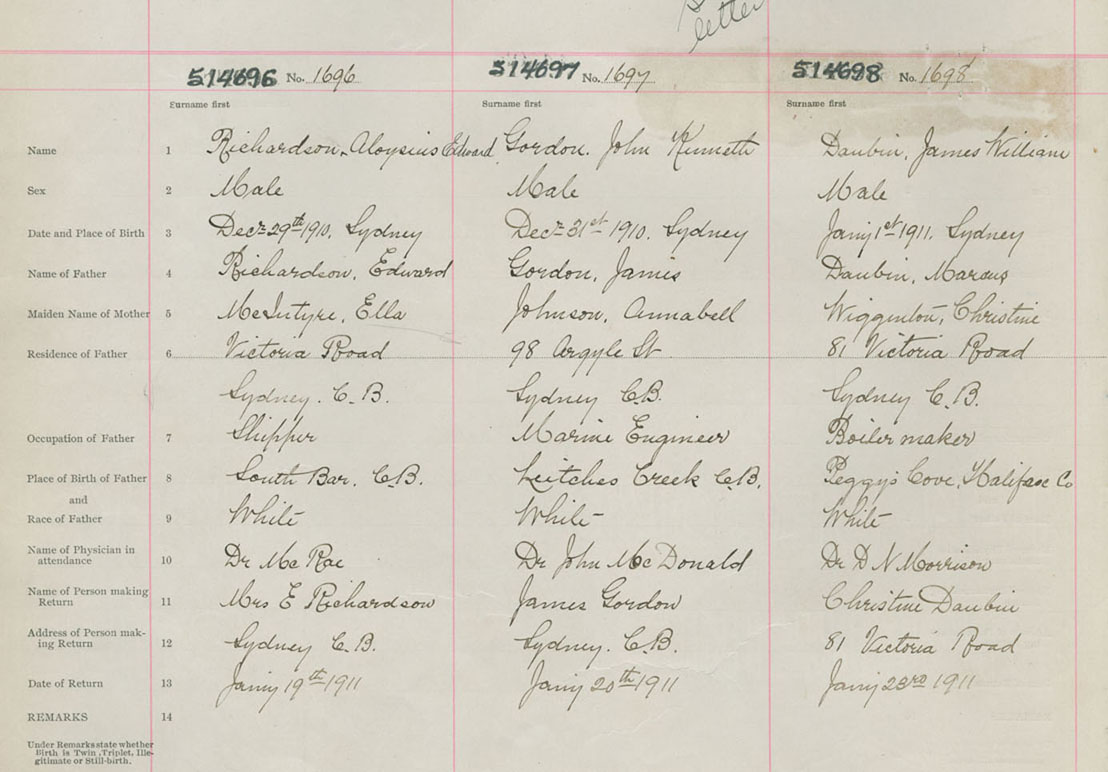 letter
514696 No. 1696 514697 No. 1697 514698 No. 1698
Surname first Surname first Surname first
Name 1 Richardson, Aloysius Edward Gordon, John Kenneth Daubin, James William
Sex 2 Male Male Male
Date and Place of Birth 3 Decr 29th 1910, Sydney Decr 31st 1910, Sydney Jany 1st 1911, Sydney
Name of Father 4 Richardson, Edward Gordon, James Daubin, Marcus
Maiden Name of Mother 5 McIntyre, Ella Johnson, Annabell Wigginton, Christine
Residence of Father 6 Victoria Road 98 Argyle St 81 Victoria Road
Sydney. C.B. Sydney C.B. Sydney C.B.
Occupation of Father 7 Shipper Marine Engineer Boiler maker
Place of Birth of Father 8 South Bar, C.B. Leitches Creek C.B. Peggy's Cove, Halifax Co
and
Race of Father 9 White White White
Name of Physician in
attendance 10 Dr Mc Rae Dr John McDonald Dr D N Morrison
Name of Person making
Return 11 Mrs E Richardson James Gordon Christine Daubin
Address of Person mak-
ing Return 12 Sydney C.B. Sydney. C.B. 81 Victoria Road
Date of Return 13 Jany 19th 1911 Jany 20th 1911 Jany 23rd 1911
REMARKS 14
Under Remarks state whether
Birth is Twin, Triplet, Ille-
gitimate or Still-birth.